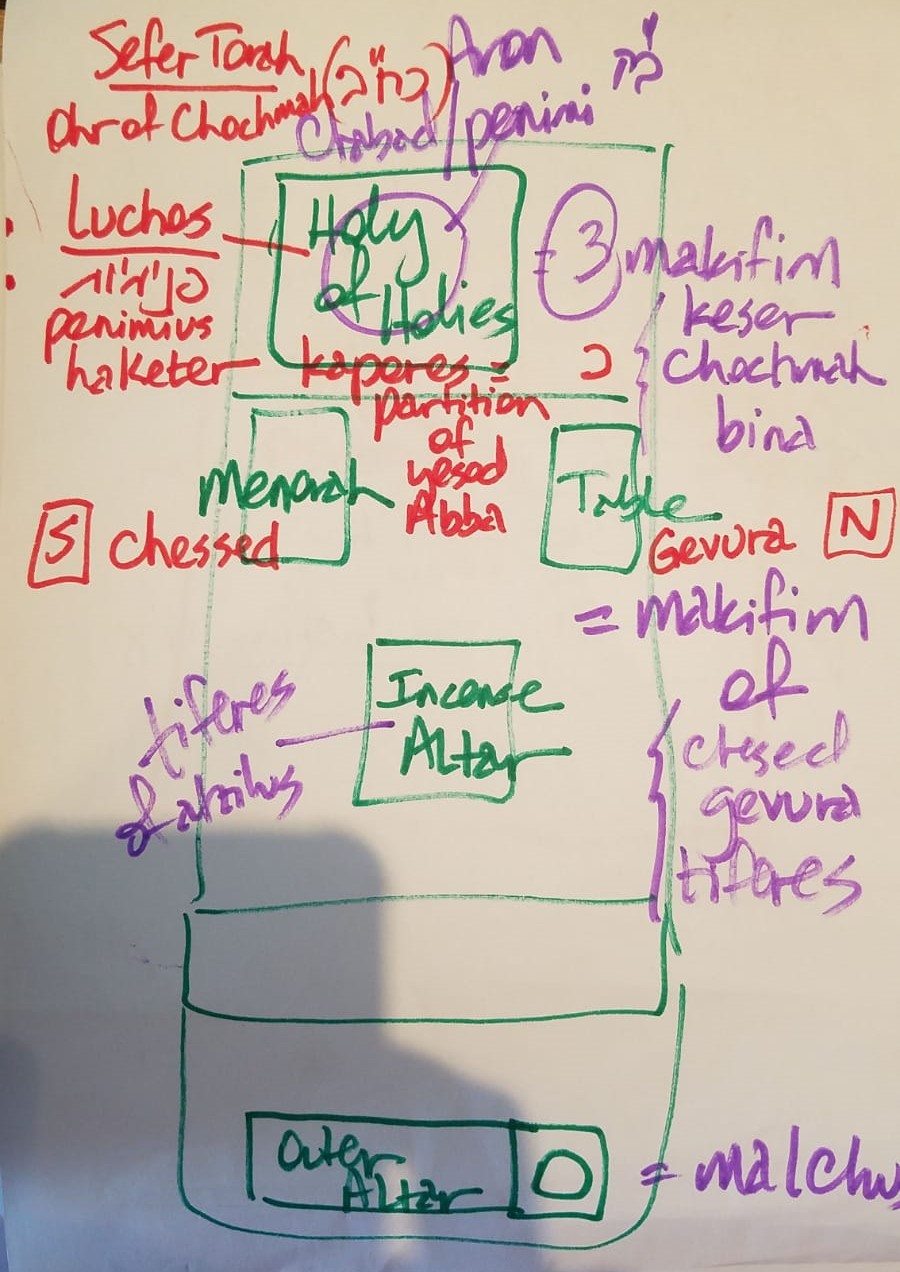 Sefer Torah
Ohr of Chochmah
Aron
Chabad/penimi
Holy
of
Holies
= 3 makifim
keser
Chochmah
bina
Luchos
penimius
haketer
kapores =
partition
of
yesod
Abba
Menorah
Table
S Chessed
Gevura N
= makifim
of
chesed
gevura
tiferes
Incense
Altar
tiferes
of atzilus
Outer
Altar
= malchus